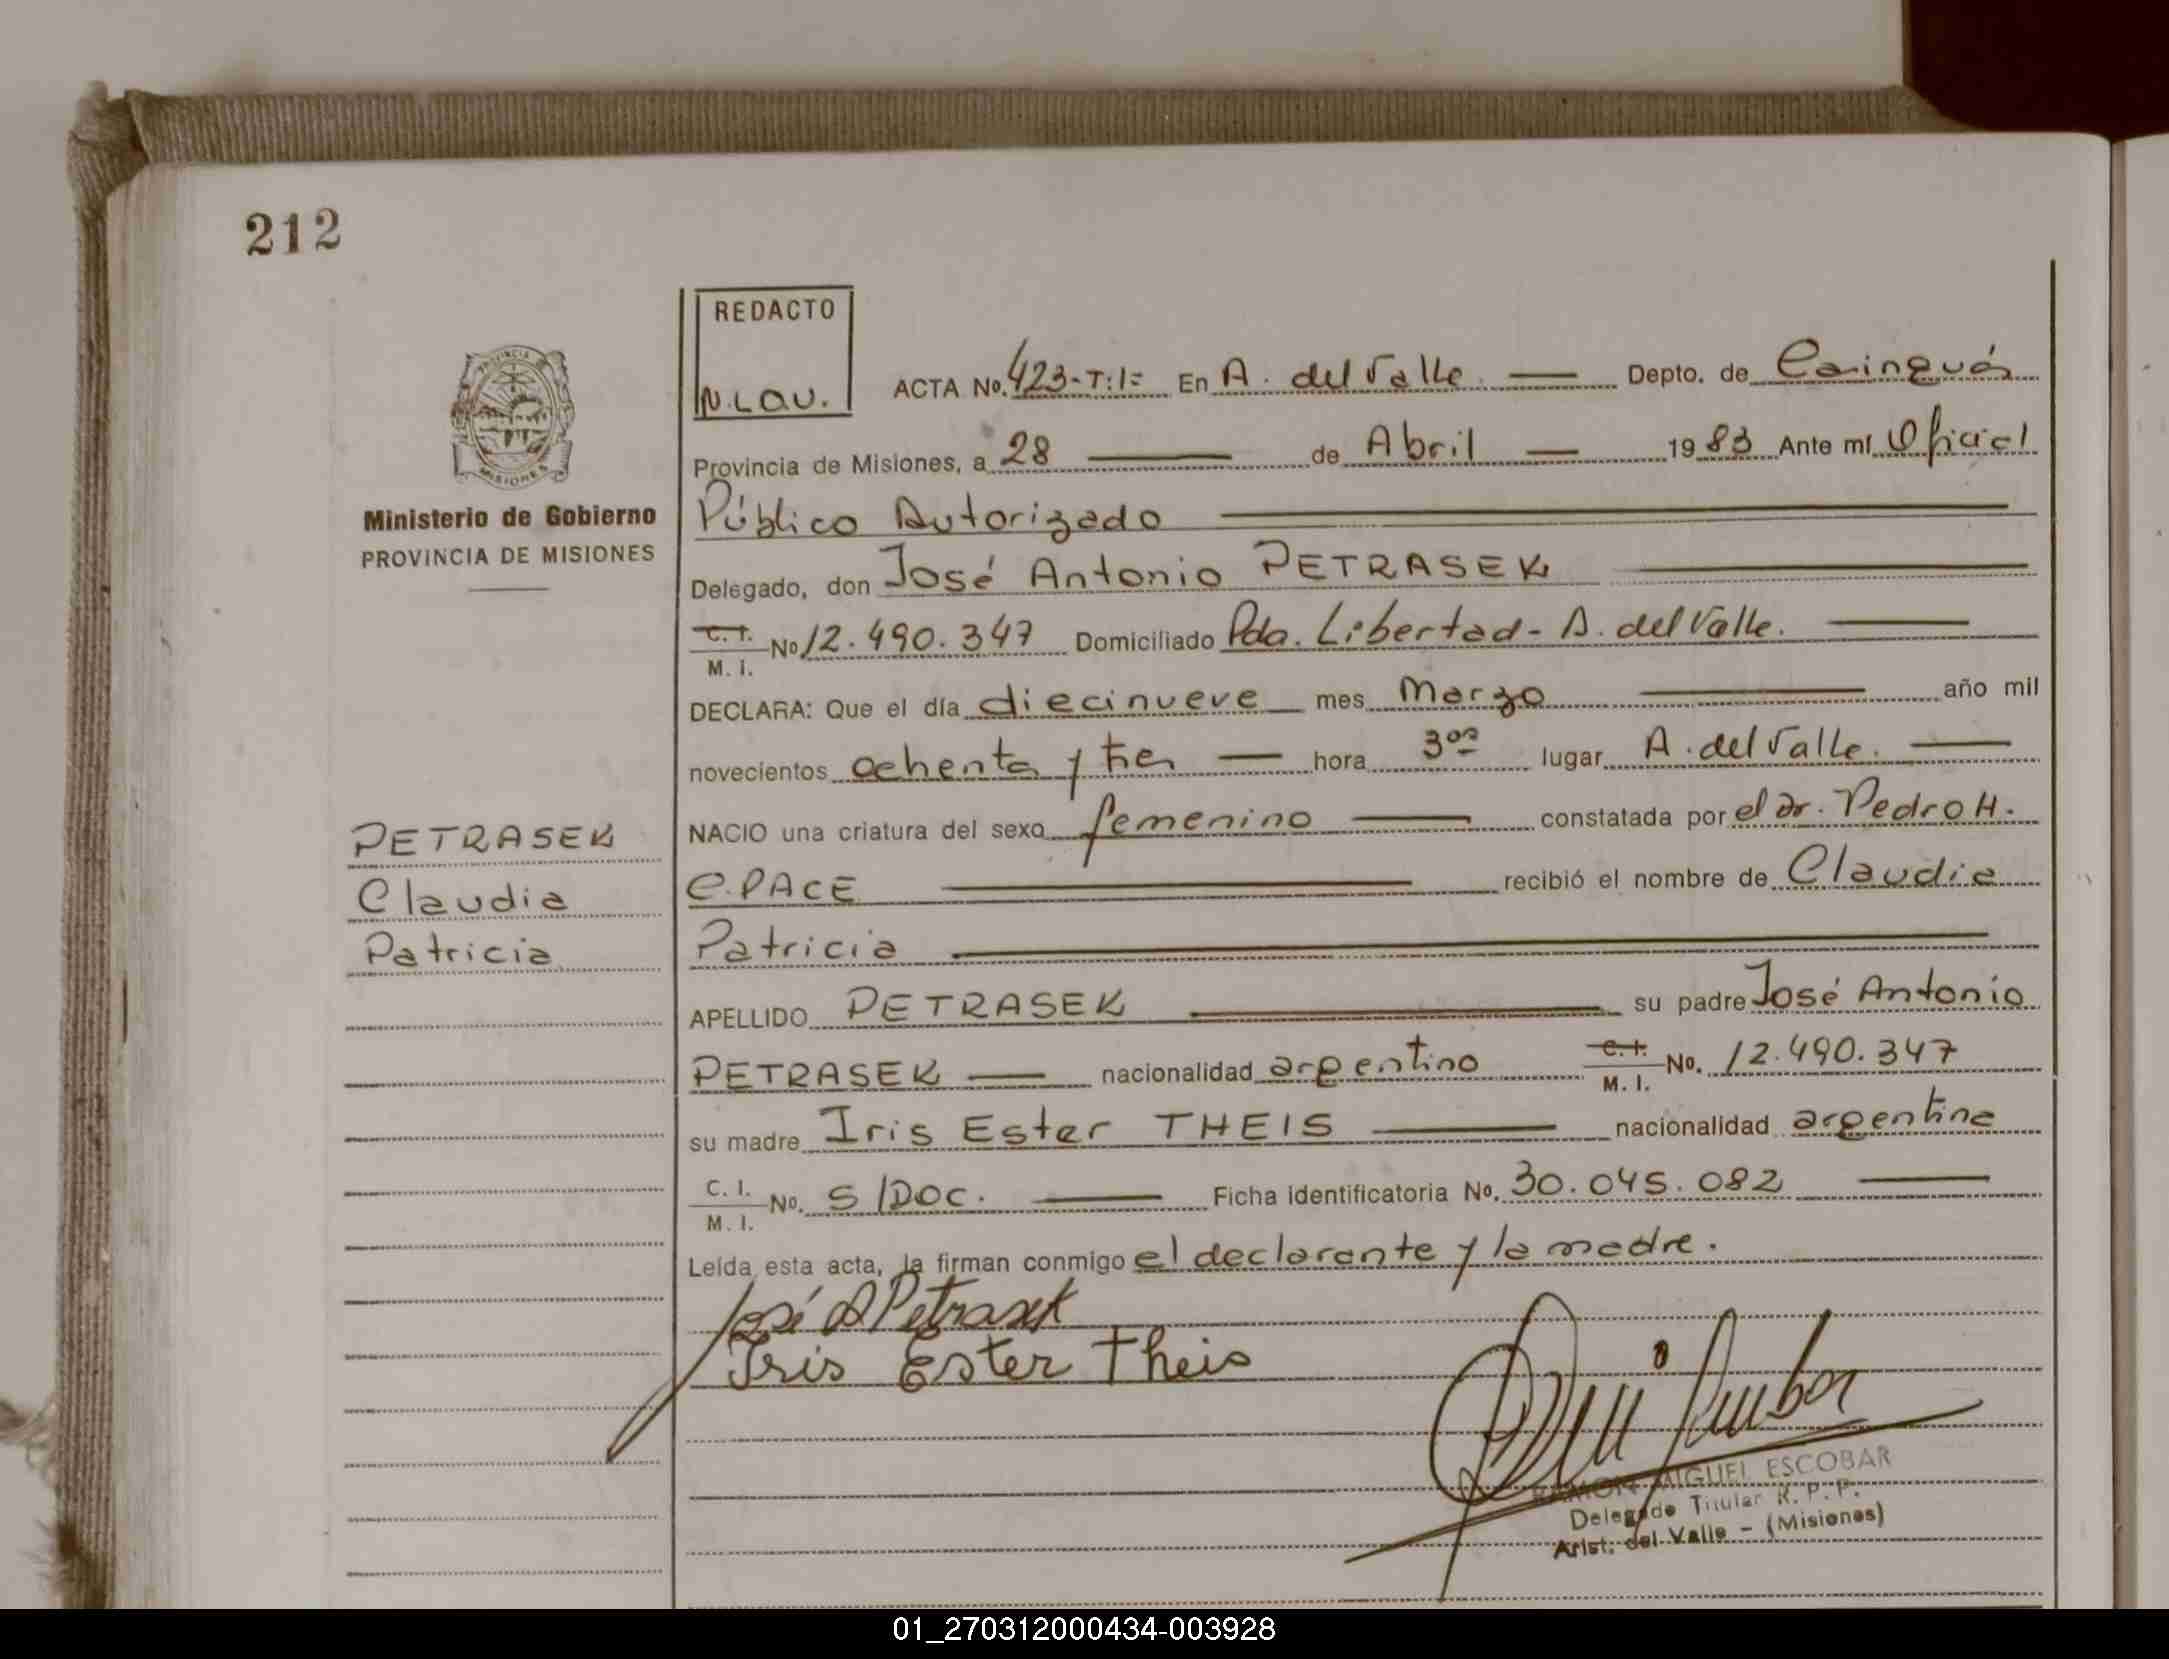 212
REDACTO
N.LOU.
PROVINCIA
MISIONES
Ministerio de Gobierno
PROVINCIA DE MISIONES
PETRASEK
Claudia
Patricia
ACTA No. 423-T:1= En A. del Valle Depto. de Cainguás
Provincia de Misiones, a 28 de Abril 1983 Ante mí Oficial
Público Autorizado
Delegado, don José Antonio PETRASEK
C. I. M. I. No 12.490.347 Domiciliado Pda. Libertad - A. del Valle.
DECLARA: Que el día diecinueve mes Marzo año mil
novecientos ochenta y tres hora 3ºº lugar A. del Valle.
NACIO una criatura del sexo femenino constatada por el Dr. Pedro H.
C. PACE recibió el nombre de Claudia
Patricia
APELLIDO PETRASEK su padre José Antonio
PETRASEK nacionalidad argentino C. I. M. I. No. 12.490.347
su madre Iris Ester THEIS nacionalidad argentina
C. I. M. I. No. S/DOC. Ficha identificatoria No. 30.045.082
Leída esta acta, la firman conmigo el declarante y la madre.
José A Petrasek
Iris Ester Theis
RAMON MIGUEL ESCOBAR
Delegado Titular R. P. P.
Arist. del Valle - (Misiones)
01_270312000434-003928